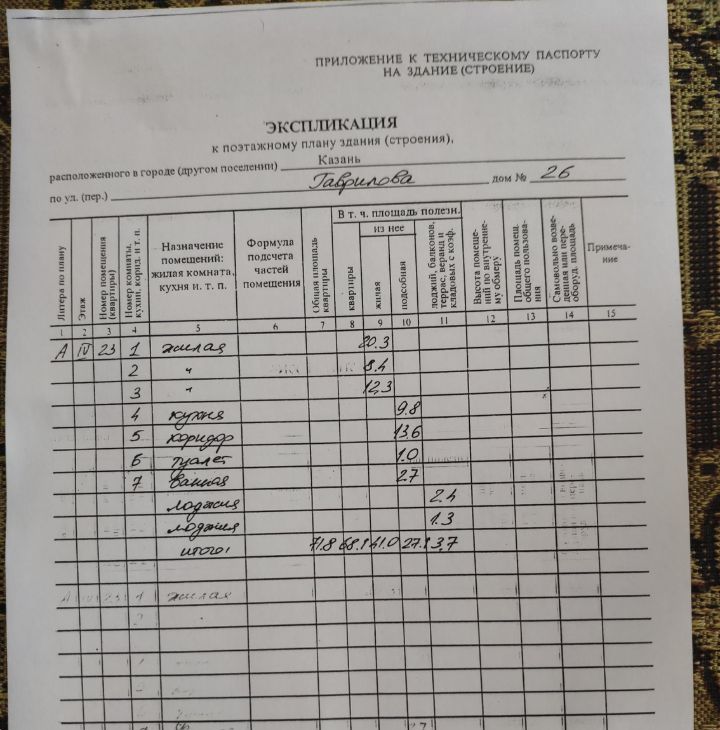 ПРИЛОЖЕНИЕ К ТЕХНИЧЕСКОМУ ПАСПОРТУ
НА ЗДАНИЕ (СТРОЕНИЕ)
ЭКСПЛИКАЦИЯ
к поэтажному плану здания (строения),
расположенного в городе (другом поселении) Казань
по ул. (пер.) Гаврилова дом № 26
Литера по плану
Этаж
Номер помещения (квартиры)
Номер комнаты, кухни, корид. и т. п.
Назначение помещений: жилая комната, кухня и. т. п.
Формула подсчета частей помещения
Общая площадь квартиры
В т. ч. площадь полезн.
из нее
квартиры
жилая
подсобная
лоджий, балконов, террас, веранд и кладовых с коэф.
Высота помещений по внутреннему обмеру
Площадь помещ. общего пользования
Самовольно возведенная или переоборуд. площадь
Примечание
1 2 3 4 5 6 7 8 9 10 11 12 13 14 15
А IV 23 1 жилая 20.3
2 " 8.4
3 " 12.3
4 кухня 9.8
5 коридор 13.6
6 туалет 1.0
7 ванная 2.7
лоджия 2.4
лоджия 1.3
итого: 71.8 68.1 41.0 27.1 3.7
жилая